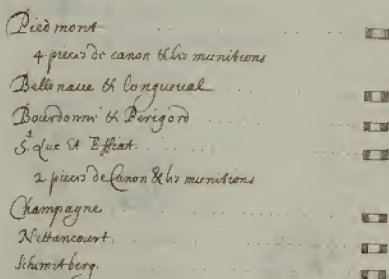 Piedmont
4 pieces de canon & les munitions
Bellenaue & Longueual
Bourdonné & Perigord
S.t Luc Et Effiat.
2 pieces de Canon & les munitions
Champagne
Nettancourt.
Schmitberg.